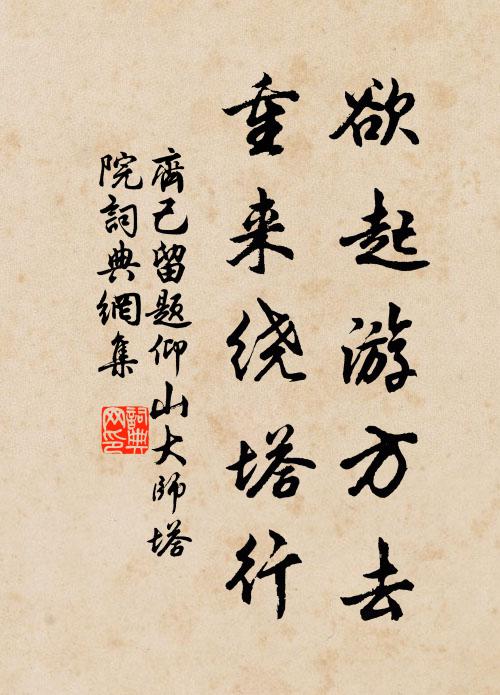 欲起游方去
重来绕塔行
齊己留题仰山大師塔
院詞典網集
詞典
网印